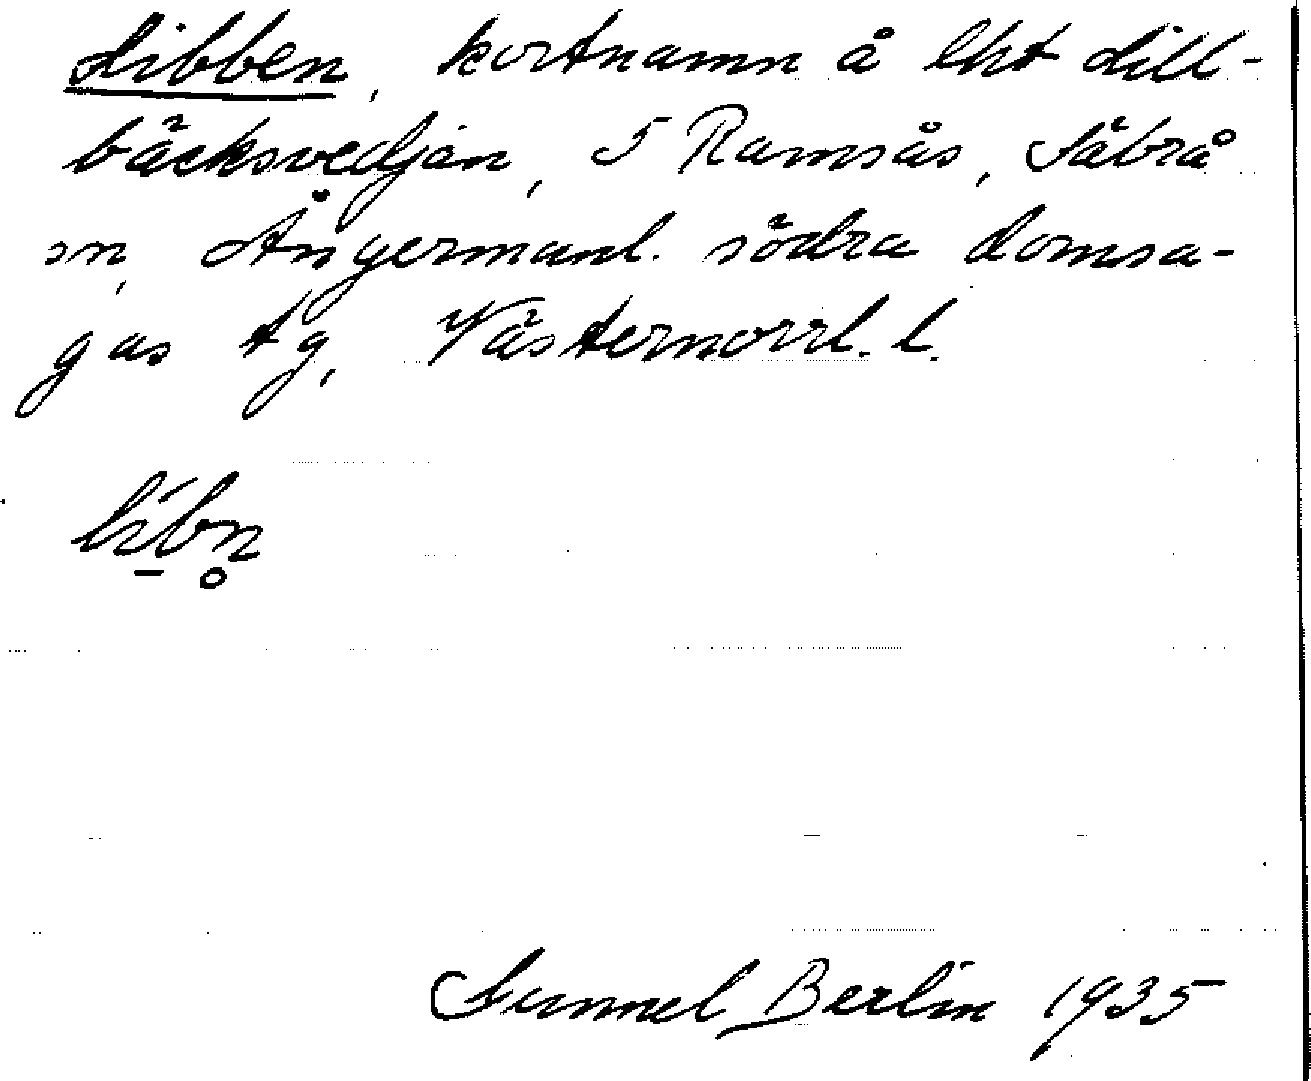 Libben, kortnamn å lht Lill-
bäcksvedjan, 5 Ramsås, Säbrå
sn, Ångermanl. södra domsa-
gas tg, Västernorrl. l.
líbn̥
Gunnel Berlin 1935